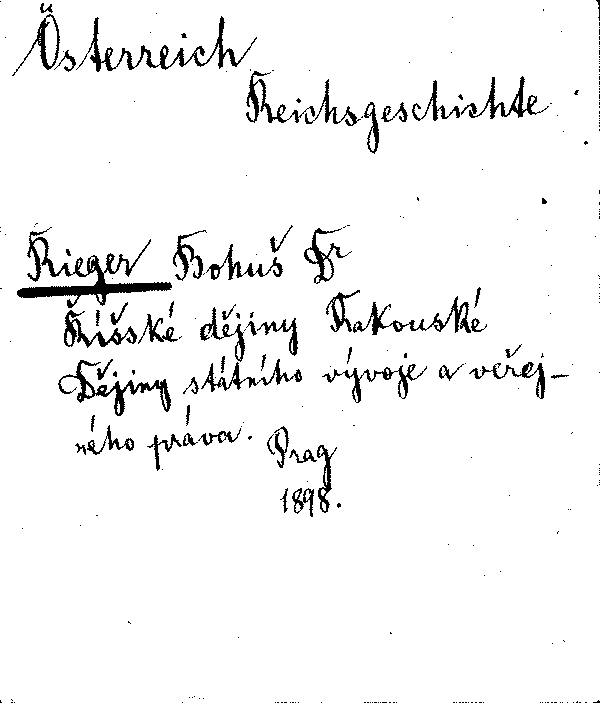 Österreich
Reichsgeschichte
Rieger Bohuš Dr
Říšské dějiny Rakouské
Dějiny státního vývoje a veřej-
ného práva.
Prag
1898.